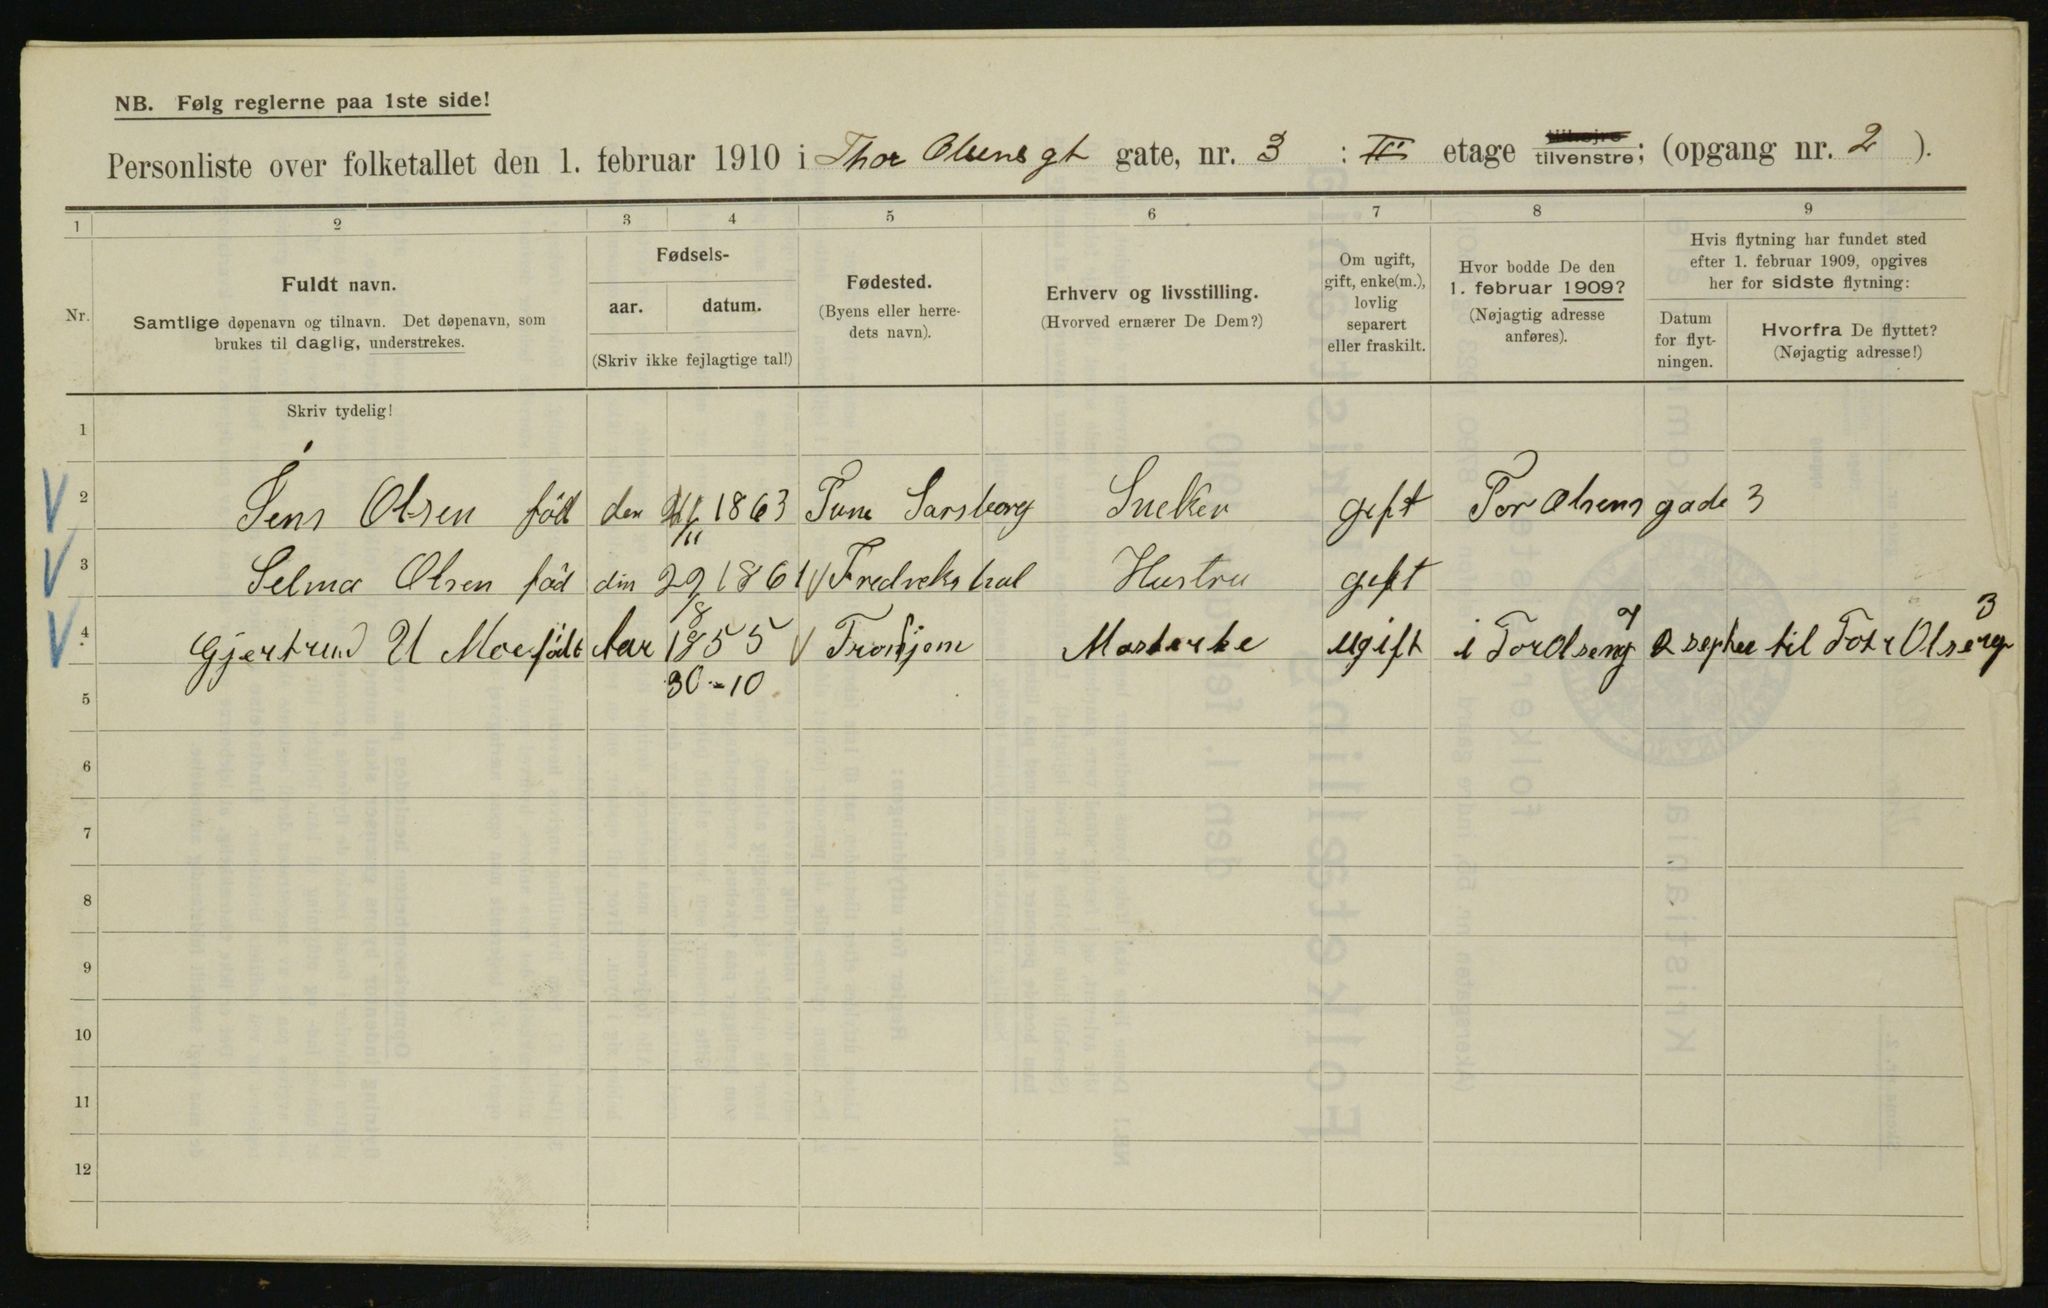 NB. Følg reglerne paa 1ste side!
Personliste over folketallet den 1. februar 1910 i Thor Olsens gt gate, nr. 3 : III etage tilhøjre tilvenstre; (opgang nr. 2 ).
1 2 3 4 5 6 7 8 9
Nr.
Fuldt navn.
Samtlige døpenavn og tilnavn. Det døpenavn, som
brukes til daglig, understrekes.
Fødsels-
aar. datum.
(Skriv ikke fejlagtige tal!)
Fødested.
(Byens eller herre-
dets navn).
Erhverv og livsstilling.
(Hvorved ernærer De Dem?)
Om ugift,
gift, enke(m.),
lovlig
separert
eller fraskilt.
Hvor bodde De den
1. februar 1909?
(Nøjagtig adresse
anføres).
Hvis flytning har fundet sted
efter 1. februar 1909, opgives
her for sidste flytning:
Datum
for flyt-
ningen.
Hvorfra De flyttet?
(Nøjagtig adresse!)
Skriv tydelig!
1
2 Jens Olsen föd den 1863 Tune Sarsborg Sneker gift Tor Olsens gade 3
3 Selma Olsen föd den 22/8 1861 Fredrekshal Hustru gift
4 Gjertrud U Moe födt Aar 1855 Tronhjem ugift i Tor Olseng 7 2 til Totr Olseng 3
5 30-10
6
7
8
9
10
11
12